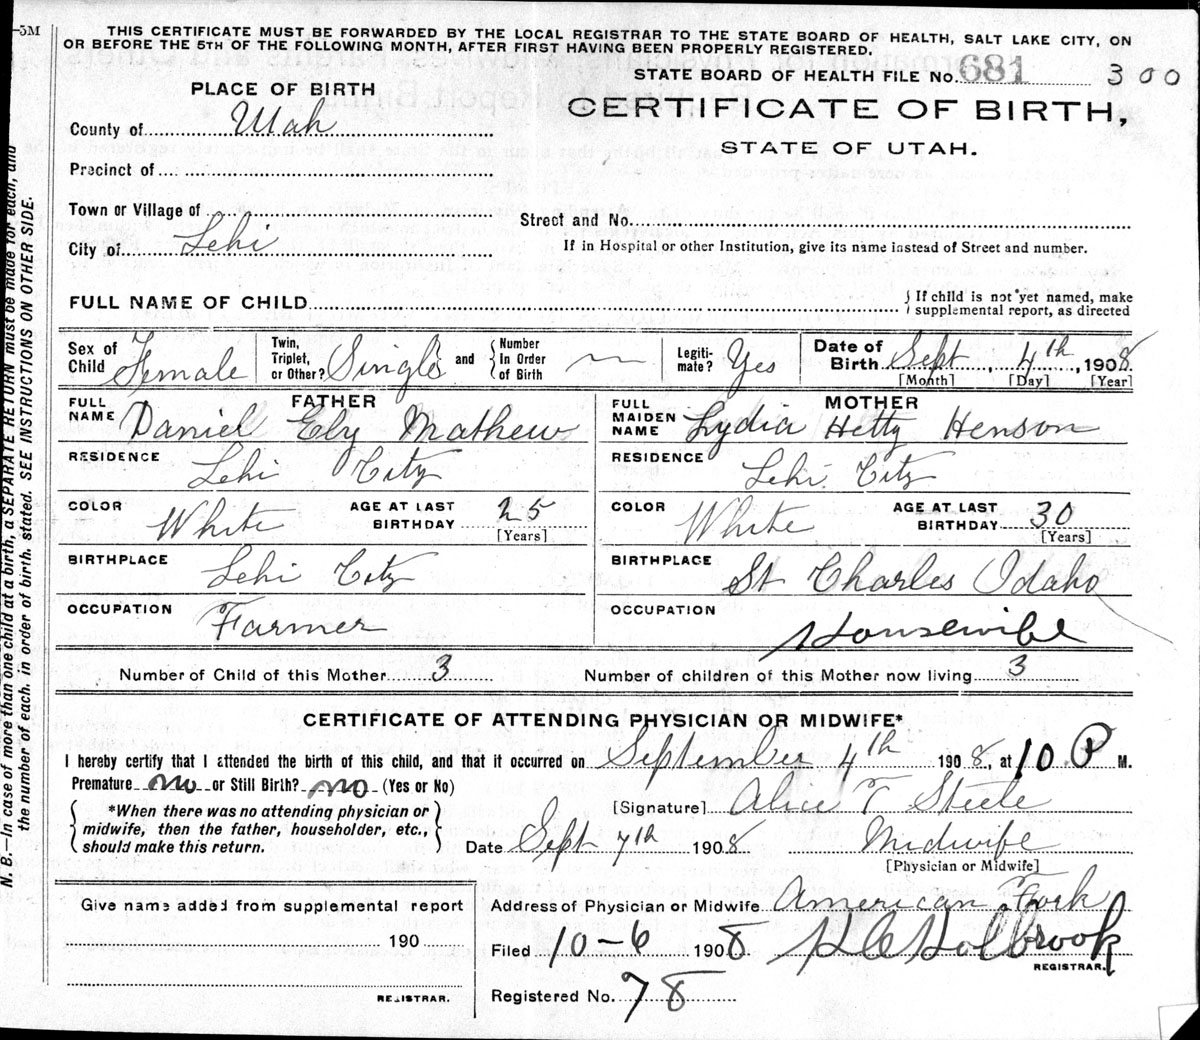 5M
THIS CERTIFICATE MUST BE FORWARDED BY THE LOCAL REGISTRAR TO THE STATE BOARD OF HEALTH, SALT LAKE CITY, ON
OR BEFORE THE 5TH OF THE FOLLOWING MONTH, AFTER FIRST HAVING BEEN PROPERLY REGISTERED.
STATE BOARD OF HEALTH FILE No. 681 300
PLACE OF BIRTH
CERTIFICATE OF BIRTH,
STATE OF UTAH.
County of Utah
Precinct of
Town or Village of
Street and No.
City of Lehi
If in Hospital or other Institution, give its name instead of Street and number.
FULL NAME OF CHILD { If child is not yet named, make supplemental report, as directed
Sex of Child Female Twin, Triplet, or Other? Single and { Number In Order of Birth Legitimate? Yes Date of Birth Sept 4th, 1908
[Month] [Day] [Year]
FATHER
FULL NAME Daniel Ely Mathew
RESIDENCE Lehi City
COLOR White AGE AT LAST BIRTHDAY 25
[Years]
BIRTHPLACE Lehi City
OCCUPATION Farmer
MOTHER
FULL MAIDEN NAME Lydia Hetty Henson
RESIDENCE Lehi City
COLOR White AGE AT LAST BIRTHDAY 30
[Years]
BIRTHPLACE St Charles Idaho
OCCUPATION Housewife
Number of Child of this Mother 3 Number of children of this Mother now living 3
CERTIFICATE OF ATTENDING PHYSICIAN OR MIDWIFE*
I hereby certify that I attended the birth of this child, and that it occurred on September 4th 1908, at 10 P M.
Premature no or Still Birth? no (Yes or No)
{ *When there was no attending physician or midwife, then the father, householder, etc., should make this return. }
[Signature] Alice T Steele
Date Sept 7th 1908 Midwife
[Physician or Midwife]
Give name added from supplemental report
190
REGISTRAR.
Address of Physician or Midwife American Fork
Filed 10-6 1908 Holbrook
REGISTRAR.
Registered No. 78
N. B.—In case of more than one child at a birth, a SEPARATE RETURN must be made for each, and
the number of each, in order of birth, stated. SEE INSTRUCTIONS ON OTHER SIDE.